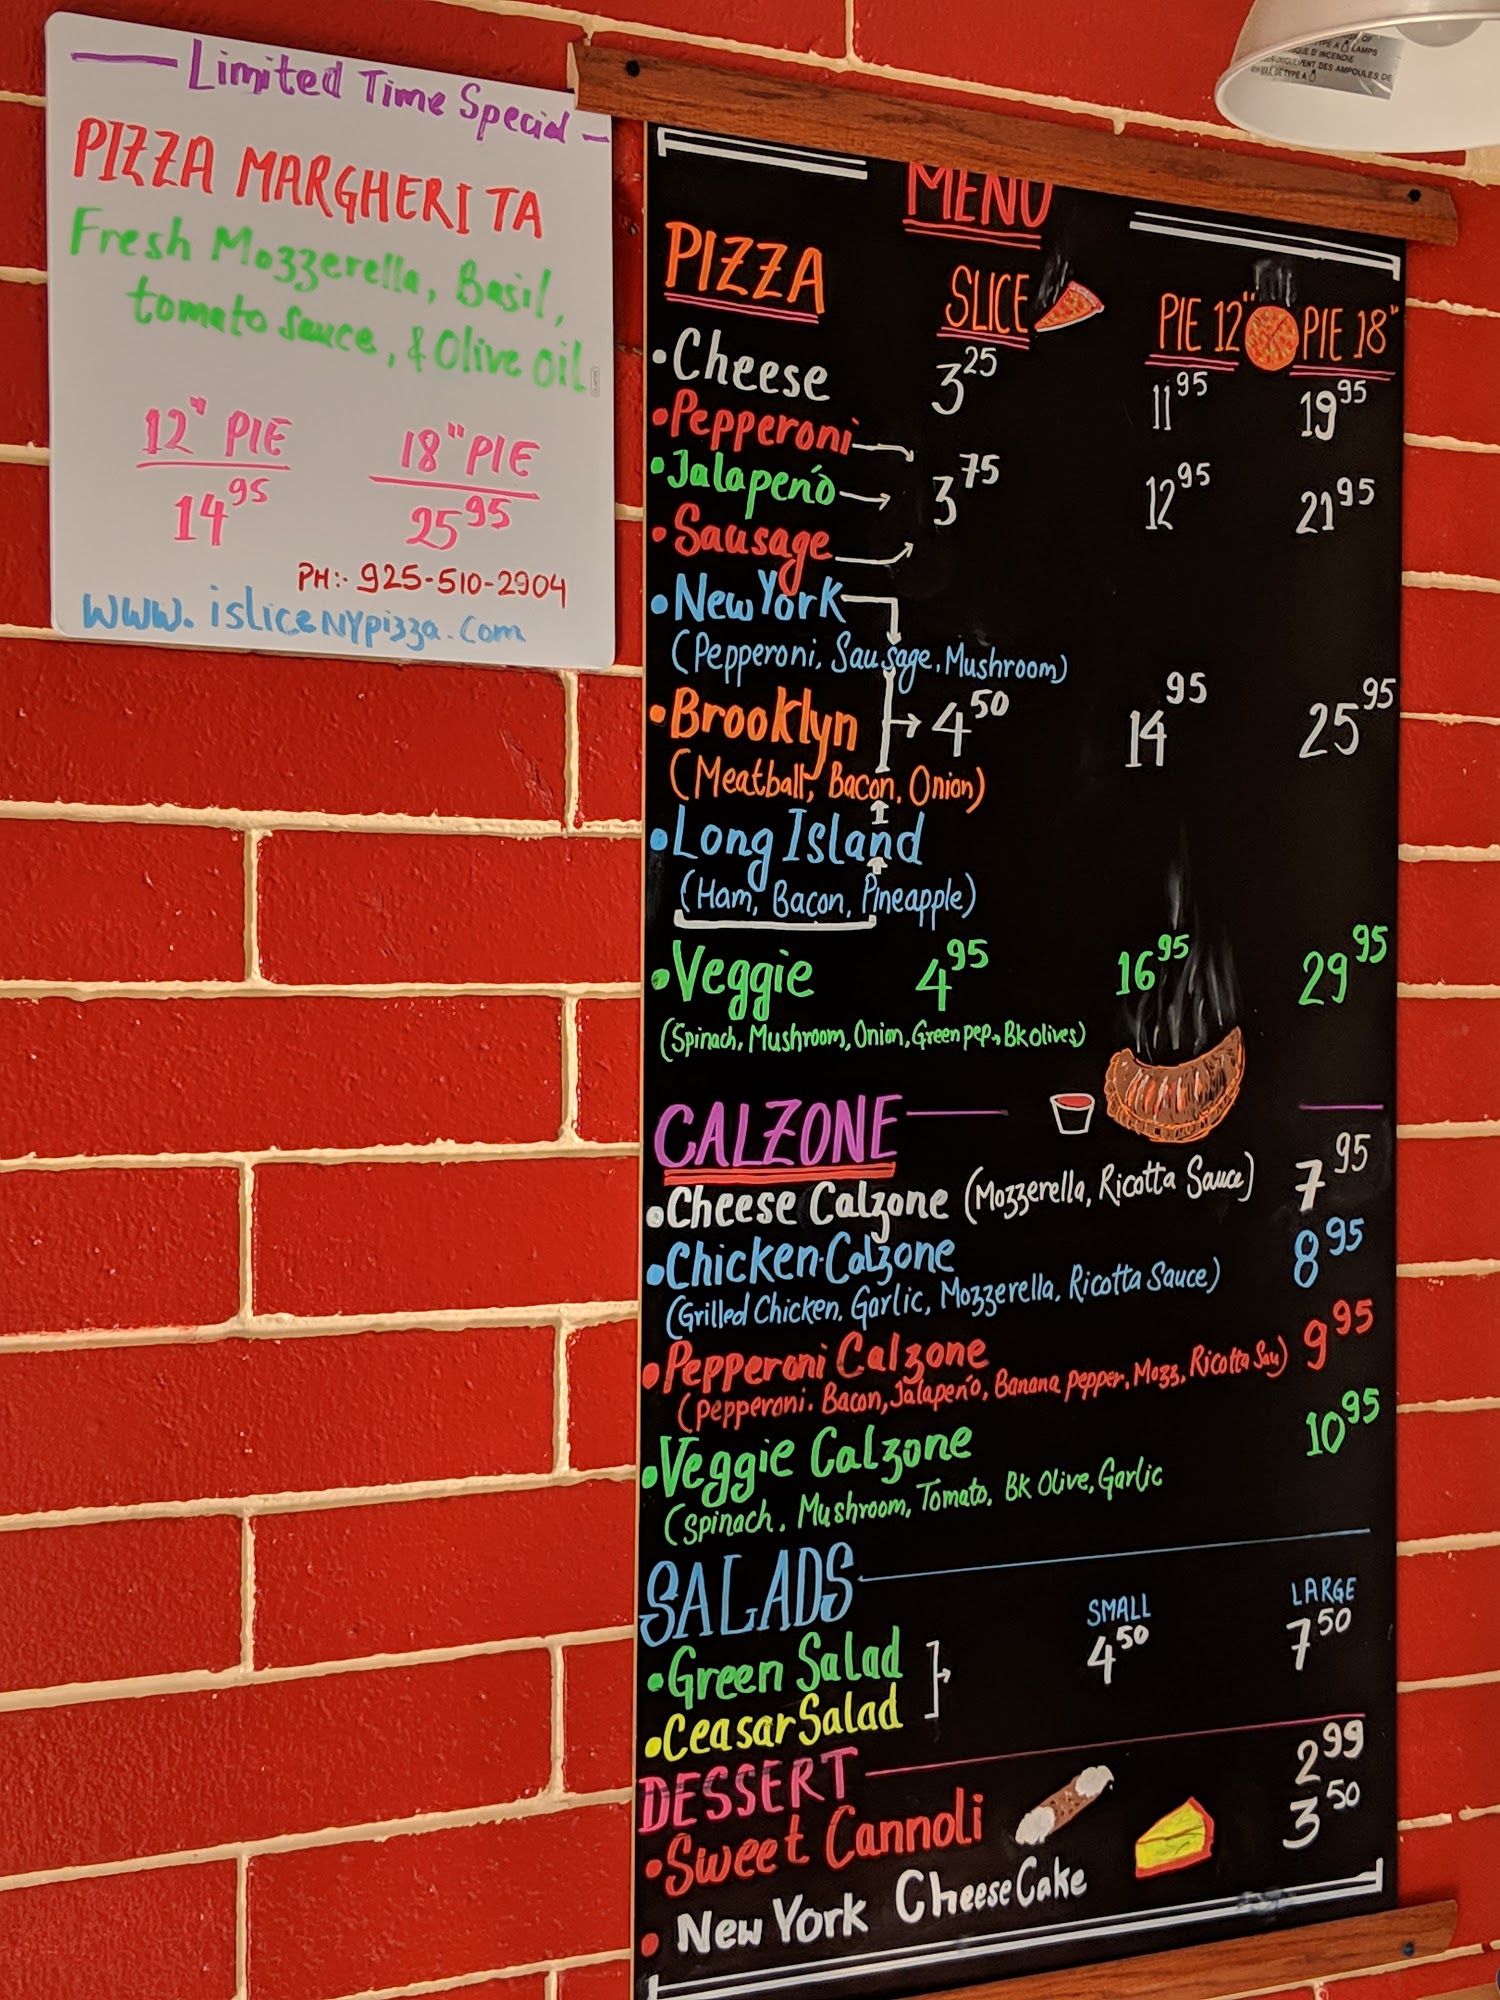 Limited Time Special
PIZZA MARGHERITA
Fresh Mozzerella, Basil,
tomato sauce, & Olive oil
12" PIE 18" PIE
14 95 25 95
PH:- 925-510-2904
www.isliceNYpizza.com
MENU
PIZZA SLICE PIE 12" PIE 18"
•Cheese 3 25 11 95 19 95
•Pepperoni
•Jalapenó 3 75 12 95 21 95
•Sausage
•New York
(Pepperoni, Sausage, Mushroom)
•Brooklyn 4 50 14 95 25 95
(Meatball, Bacon, Onion)
•Long Island
(Ham, Bacon, Pineapple)
•Veggie 4 95 16 95 29 95
(Spinach, Mushroom, Onion, Green pep, BK Olives)
CALZONE
•Cheese Calzone (Mozzerella, Ricotta Sauce) 7 95
•Chicken Calzone 8 95
(Grilled Chicken, Garlic, Mozzerella, Ricotta Sauce)
•Pepperoni Calzone 9 95
(Pepperoni. Bacon, Jalapenó, Banana pepper, Mozz, Ricotta Sau)
•Veggie Calzone 10 95
(Spinach, Mushroom, Tomato, BK Olive, Garlic
SALADS SMALL LARGE
•Green Salad 4 50 7 50
•Ceasar Salad
DESSERT
•Sweet Cannoli 2 99
•New York CheeseCake 3 50